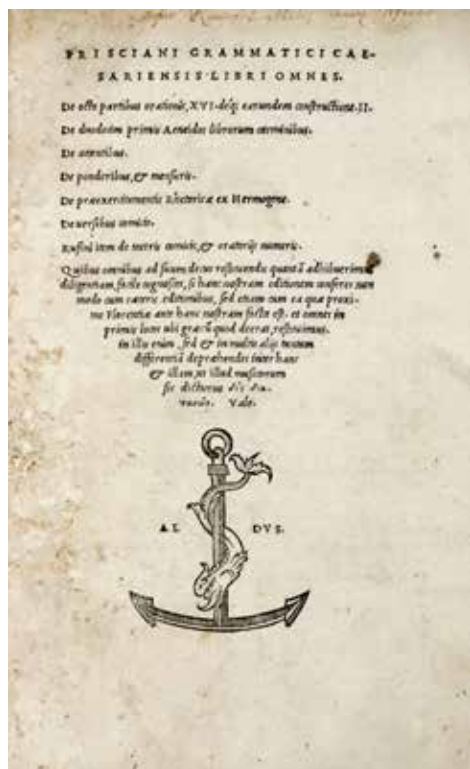 PRISCIANI GRAMMATICI CAE-
SARIENSIS LIBRI OMNES.
De octo partibus orationis, XVI. deq; earundem constructione. II.
De duodecim primis Aeneidos librorum carminibus.
De accentibus.
De ponderibus, & mensuris.
De praeexercitamentis Rhetoricæ ex Hermogene.
De uersibus comicis.
Rufini item de metris comicis, & oratorijs numeris.
Quibus omnibus ad suum decus restituendis quantã adhibuerimus
diligentiam, facile cognosces, si hanc nostram editionem conferes non
modo cum cæteris editionibus, sed etiam cum ea quæ proxi-
me Florentiæ ante hanc nostram facta est. et omneis in
primis locos ubi græcũ quod deerat, restituimus.
in illis enim, sed & in multis alijs tantam
differentiã depræhendes inter hanc
& illam, ut illud
Vale.
AL DVS.